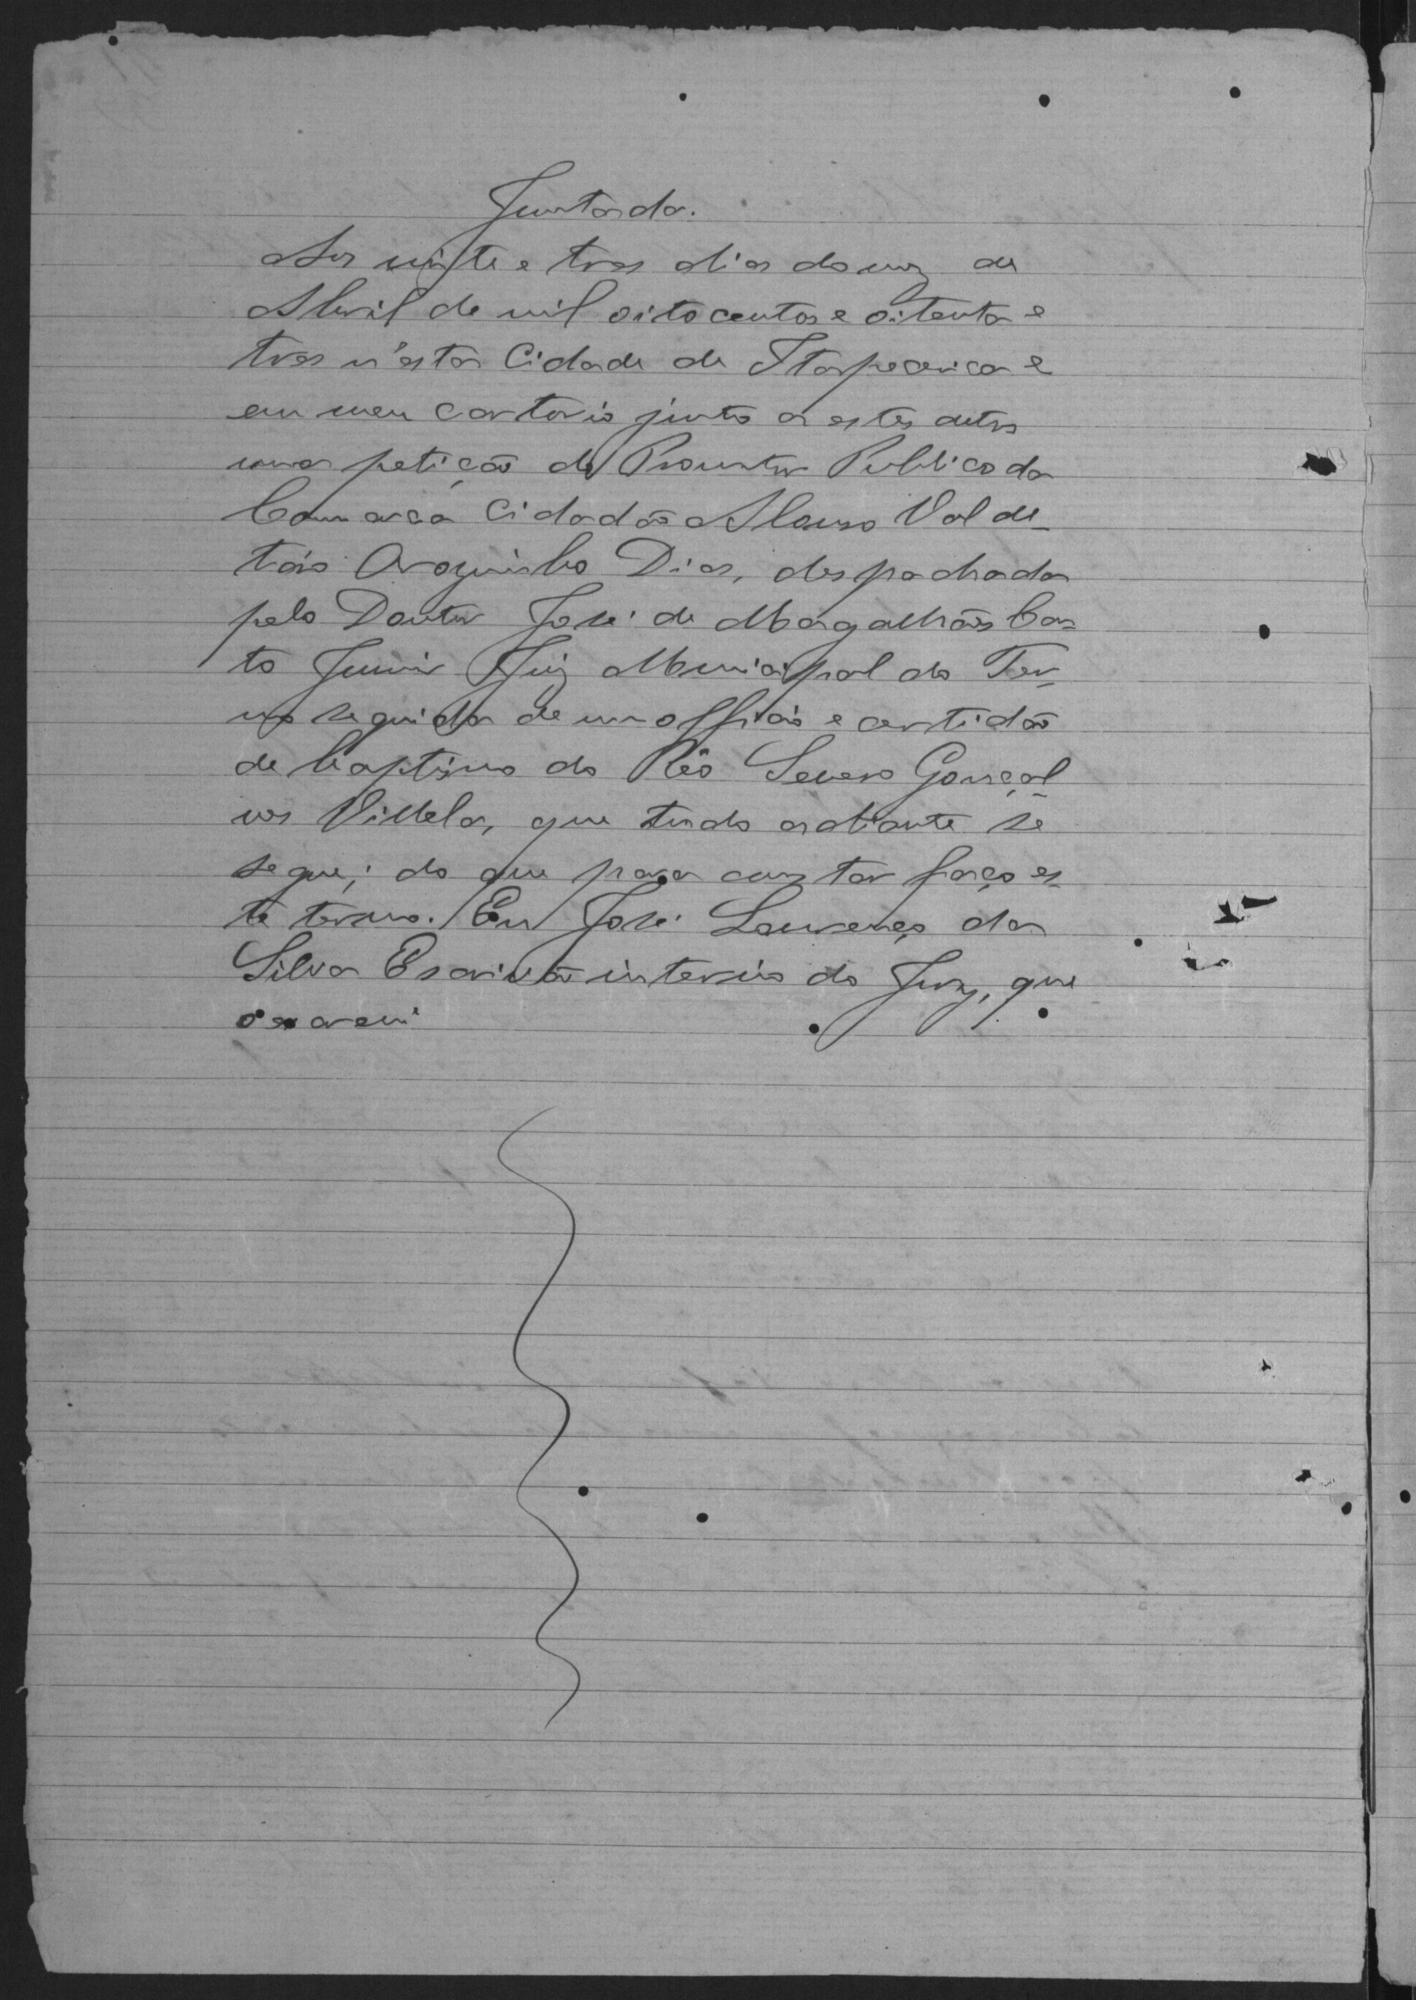 Juntada.
Aos vinte e tres dias do mez de
Abril de mil oitocentos e oitenta e
tres n'esta Cidade de Itapecerica e
em meu cartorio junto a estes autos
uma petição do Promotor Publico da
Comarca Cidadão Alonso
Dias, despachada
pelo Doutor José de Magalhães Cou-
to Junior Juiz Municipal do Ter-
mo seguida de um officio e certidão
de baptismo do Réo Severo Gonçal-
ves Villela, que tudo adiante se
segue; do que para constar faço es-
te termo. Eu José Lourenço da
Silva Escrivão interino do Jury, que
o escrevi